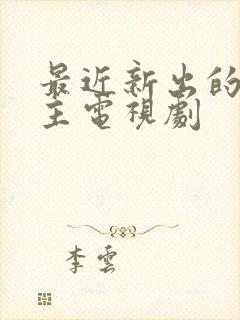 最近新出的
主電視劇
李雲